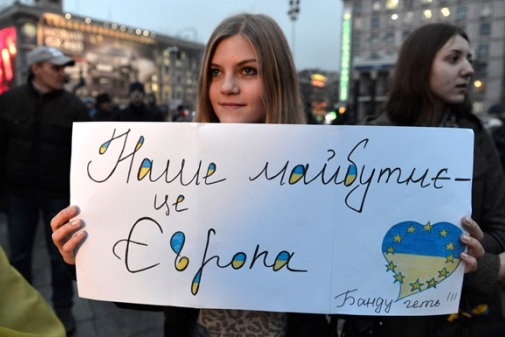 Наше майбутнє -
це
Європа
Банду геть !!!